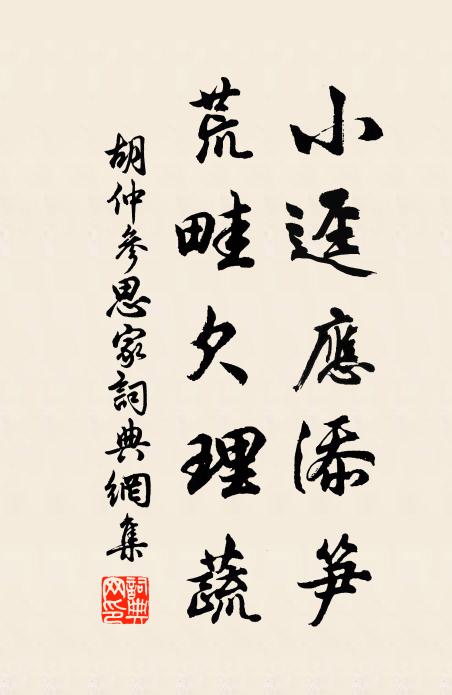 小迳應添笋
荒畦久理蔬
胡仲參思家詞典網集
詞典网印